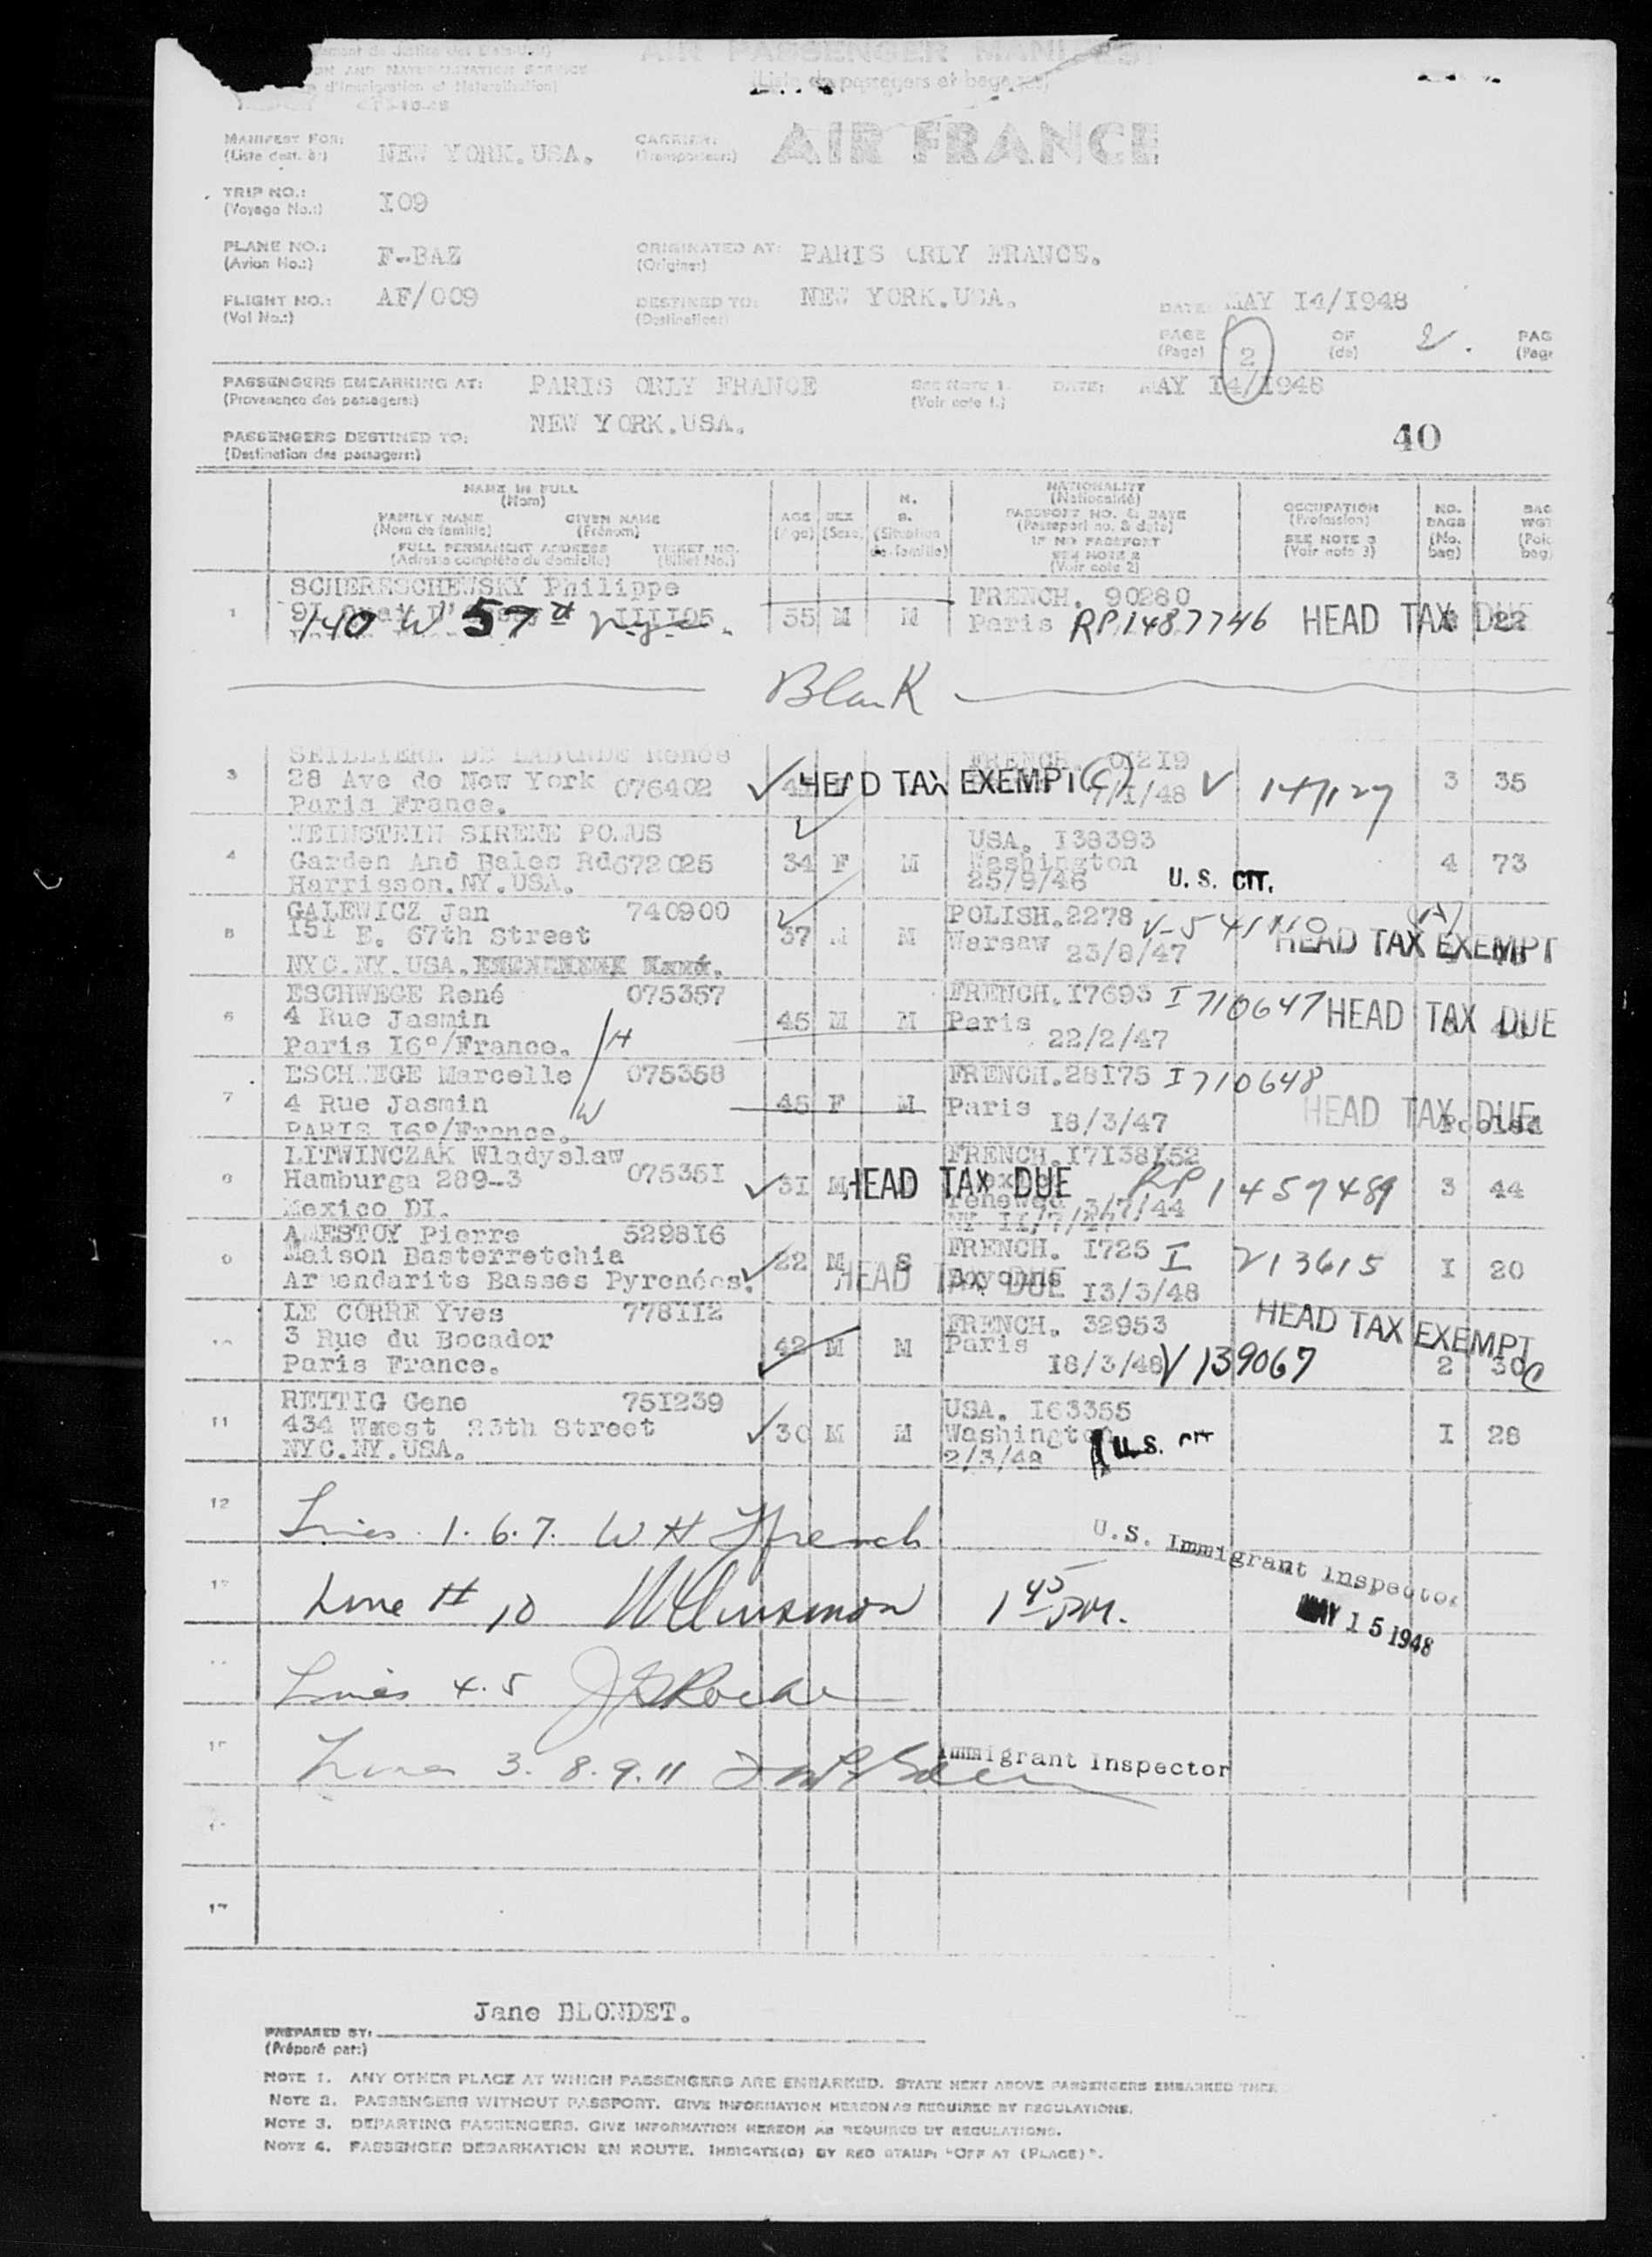 AIR PASSENGER MANIFEST
(Liste de passagers et bagages)
d'Immigration et Naturalisation)
MANIFEST FOR: NEW YORK.USA. CARRIER: AIR FRANCE
(Liste dest. à:) (Transporteur:)
TRIP NO.: I09
(Voyage No.:)
PLANE NO.: F-BAZ ORIGINATED AT: PARIS ORLY FRANCE.
(Avion No.:) (Origine:)
FLIGHT NO.: AF/009 DESTINED TO: NEW YORK.USA. DATE: MAY I4/I948
(Vol No.:) (Destination:)
PAGE 2 OF 2. PAG
(Page) (de) (Page
PASSENGERS EMBARKING AT: PARIS ORLY FRANCE SEE NOTE 1. DATE: MAY I4/I948
(Provenance des passagers:) (Voir note 1.)
PASSENGERS DESTINED TO: NEW YORK.USA.
(Destination des passagers:)
40
NAME IN FULL
(Nom)
FAMILY NAME GIVEN NAME
(Nom de famille) (Prénom)
FULL PERMANENT ADDRESS TICKET NO.
(Adresse complète du domicile) (Billet No.)
AGE SEX M. S.
(Age) (Sexe) (Situation de famille)
NATIONALITY
(Nationalité)
PASSPORT NO. & DATE
(Passeport no. & date)
IF NO PASSPORT
SEE NOTE 2
(Voir note 2)
OCCUPATION
(Profession)
SEE NOTE 3
(Voir note 3)
NO. BAGS
(No. bag)
BAG WGT
(Poid bag)
1 SCHERESCHEWSKY Philippe FRENCH. 90280
140 W 57th IIII05 55 M M Paris RP1487746 HEAD TAX DUE 22
Blank
3 SEILLIERE DE LABORDE Renée FRENCH. 01219
28 Ave de New York 076402 HEAD TAX EXEMPT (C) 7/I/48 V 147127 3 35
Paris France.
4 WEINSTEIN SIRENE POMUS USA. I38393
Garden And Bales Rd 672025 34 F M Washington 4 73
Harrisson.NY.USA. 25/9/46 U. S. CIT.
5 GALEWICZ Jan 740900 POLISH.2278
I5I E. 67th Street 37 M M Warsaw 23/8/47 HEAD TAX EXEMPT
NYC.NY.USA.
6 ESCHWEGE René 075357 FRENCH.I7693 I 710647 HEAD TAX DUE
4 Rue Jasmin 45 M M Paris
Paris I6°/France. H 22/2/47
7 ESCHWEGE Marcelle 075358 FRENCH.28I75 I 710648
4 Rue Jasmin 45 F M Paris HEAD TAX DUE Pooled
PARIS I6°/France. W I8/3/47
8 LITWINCZAK Wladyslaw FRENCH.I7I38I52
Hamburga 289-3 07535I 3I M HEAD TAX DUE RP 1459489 3 44
Mexico DI. renewed 3/7/44
NY II/7/47
9 AMESTOY Pierre 5298I6 FRENCH. I725 I 213615
Maison Basterretchia 22 M S Bayonne I 20
Armendarits Basses Pyrenées. HEAD TAX DUE I3/3/48
10 LE CORRE Yves 778II2 FRENCH. 32953 HEAD TAX EXEMPT
3 Rue du Bocador 42 M M Paris
Paris France. I8/3/48 V 139067 2 30 C
11 RETTIG Gene 75I239 USA. I63355
434 West 23th Street 30 M M Washington I 28
NYC.NY.USA. 2/3/48 U. S. CIT
12 Lines 1. 6. 7. W H French
U.S. Immigrant Inspector
13 Line # 10 1 45 PM.
MAY 15 1948
Lines 4. 5 Roche
15 Lines 3. 8. 9. 11
Immigrant Inspector
17
Jane BLONDET.
PREPARED BY:
(Préparé par:)
NOTE 1. ANY OTHER PLACE AT WHICH PASSENGERS ARE EMBARKED. STATE NEXT ABOVE PASSENGERS EMBARKED THER
NOTE 2. PASSENGERS WITHOUT PASSPORT. GIVE INFORMATION HEREON AS REQUIRED BY REGULATIONS.
NOTE 3. DEPARTING PASSENGERS. GIVE INFORMATION HEREON AS REQUIRED BY REGULATIONS.
NOTE 4. PASSENGER DEBARKATION EN ROUTE. INDICATE(D) BY RED STAMP: "OFF AT (PLACE)".